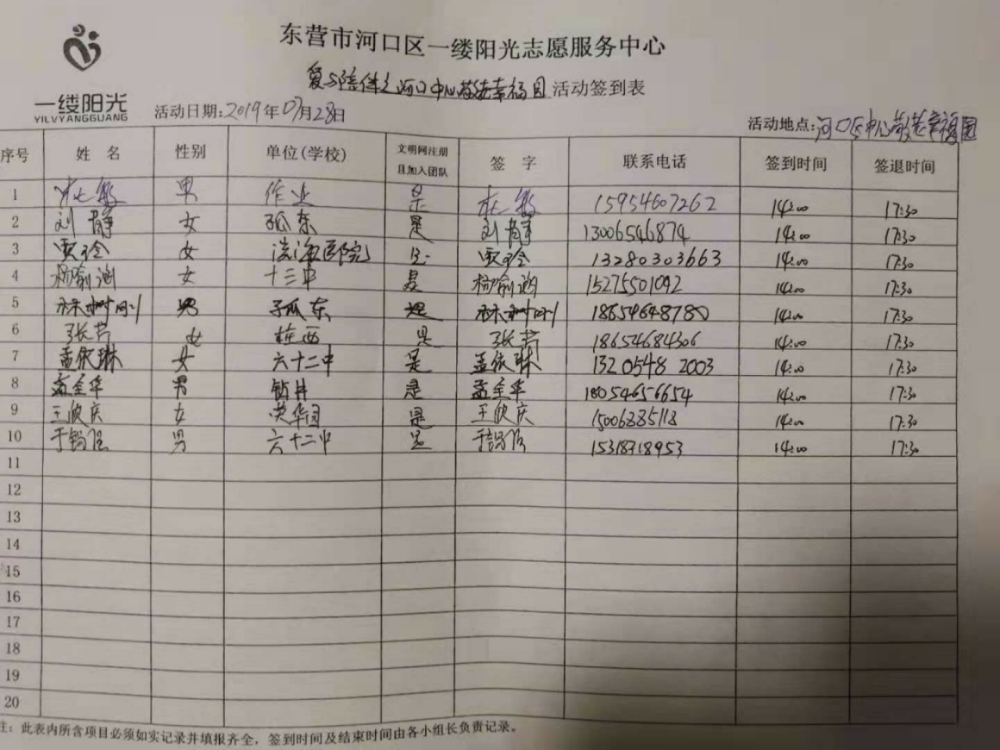 东营市河口区一缕阳光志愿服务中心
爱与陪伴之河口中心敬老幸福园活动签到表
一缕阳光
YILVYANGGUANG
活动日期:2019年07月28日
活动地点:河口区中心敬老幸福园
序号 姓名 性别 单位(学校) 文明网注册且加入团队 签字 联系电话 签到时间 签退时间
1 杜敏 男 作业 是 杜敏 15954607262 14:00 17:30
2 刘静 女 孤东 是 刘静 13006546874 14:00 17:30
3 女 滨海医院 是 13280303663 14:00 17:30
4 杨瑜涵 女 十三中 是 杨瑜涵 15275501092 14:00 17:30
5 男 孤东 是 18654648780 14:00 17:30
6 张芹 女 桩西 是 张芹 18654684306 14:00 17:30
7 孟依琳 女 六十二中 是 孟依琳 13205482003 14:00 17:30
8 孟全华 男 钻井 是 孟全华 18054656654 14:00 17:30
9 王欣庆 女 英华园 是 王欣庆 14:00 17:30
10 男 六十二中 是 15318318953 14:00 17:30
11
12
13
14
15
16
17
18
19
20
注:此表内所含项目必须如实记录并填报齐全,签到时间及结束时间由各小组长负责记录。